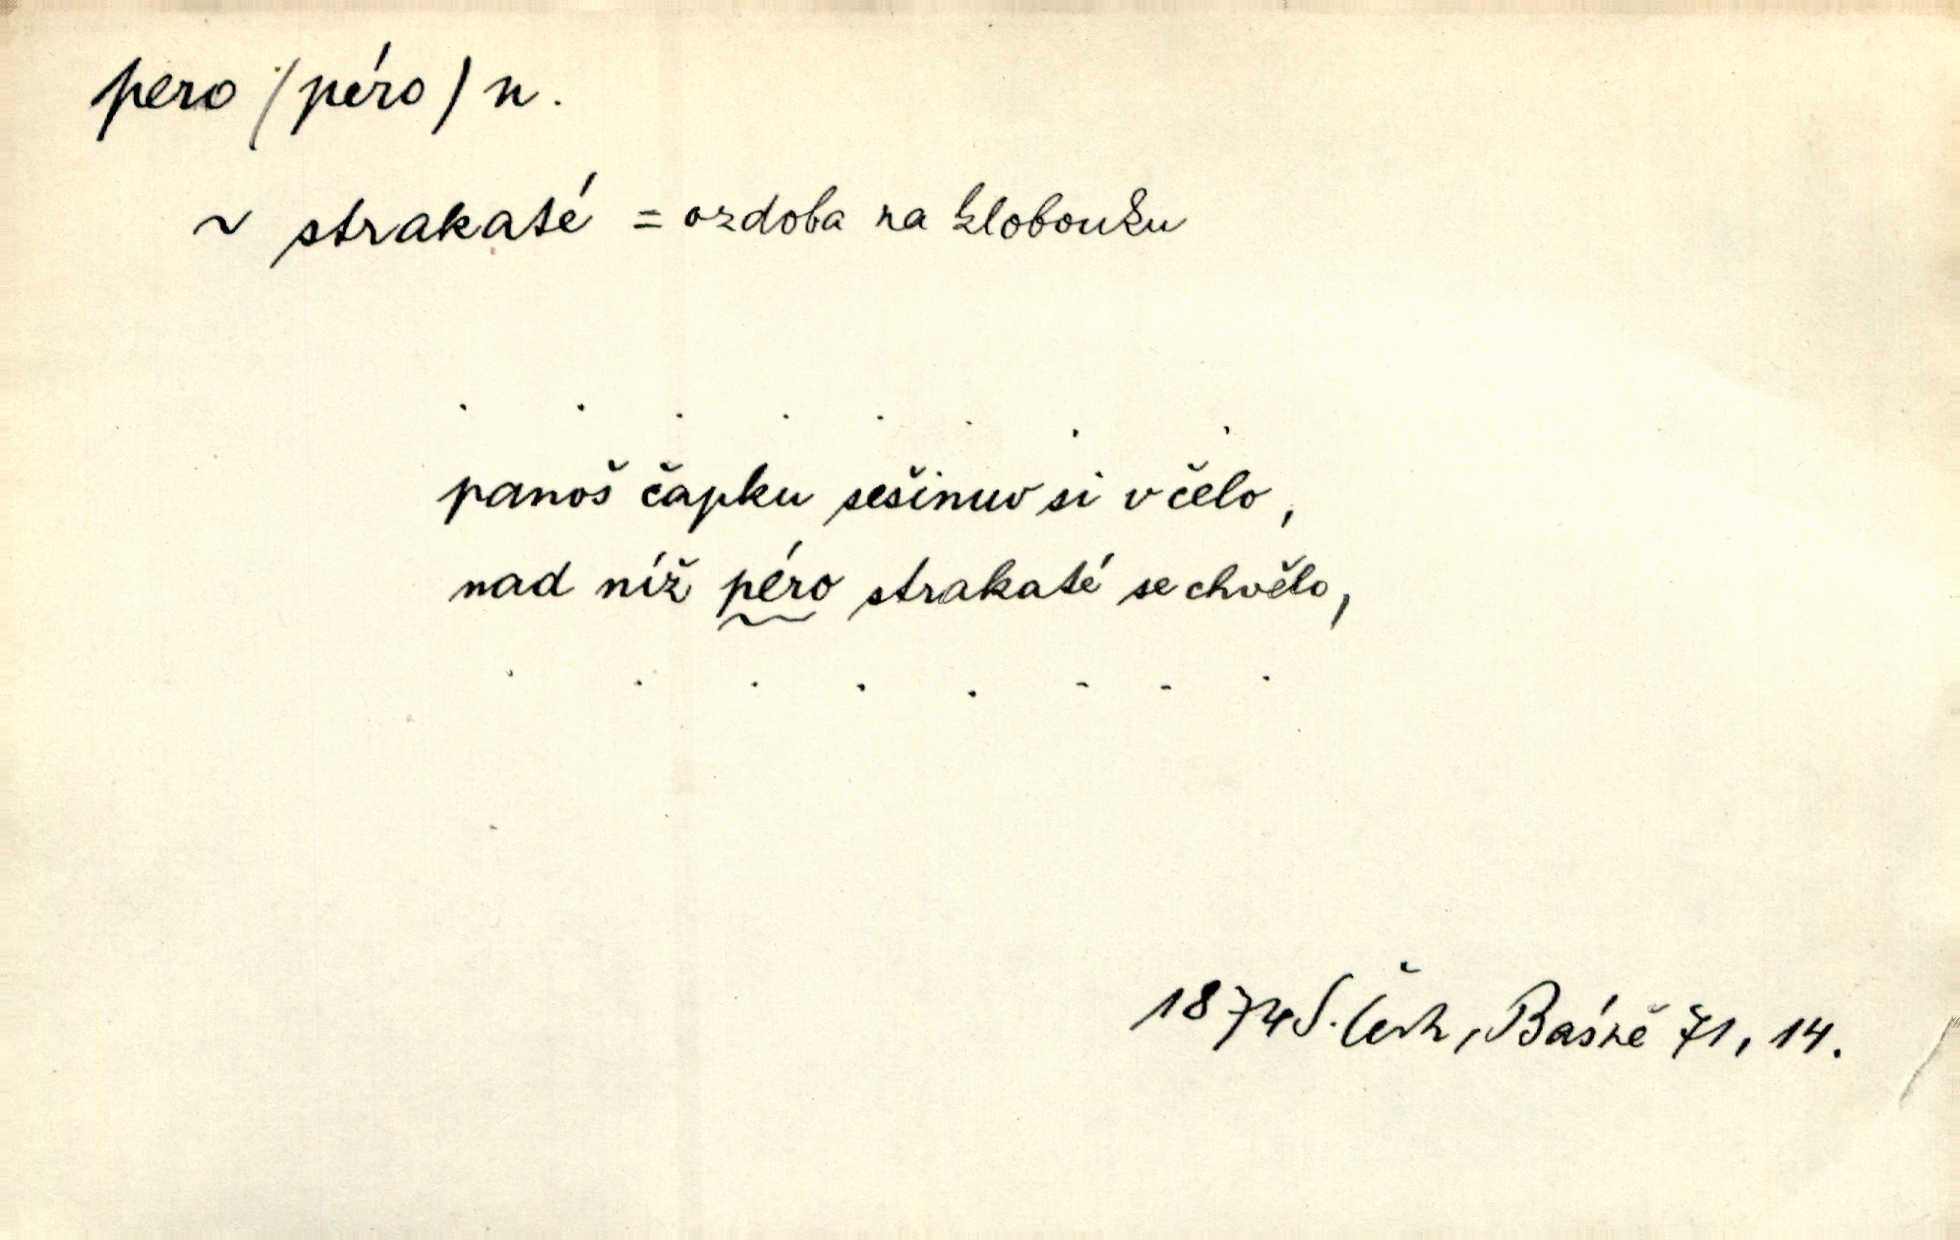 pero (péro) n.
~ strakaté = ozdoba na klobouku
. . . . . . . .
panoš čapku sešinuv si v čelo,
nad níž péro strakaté se chvělo,
. . . . . . . .
1874 S. Čech, Básně 71, 14.